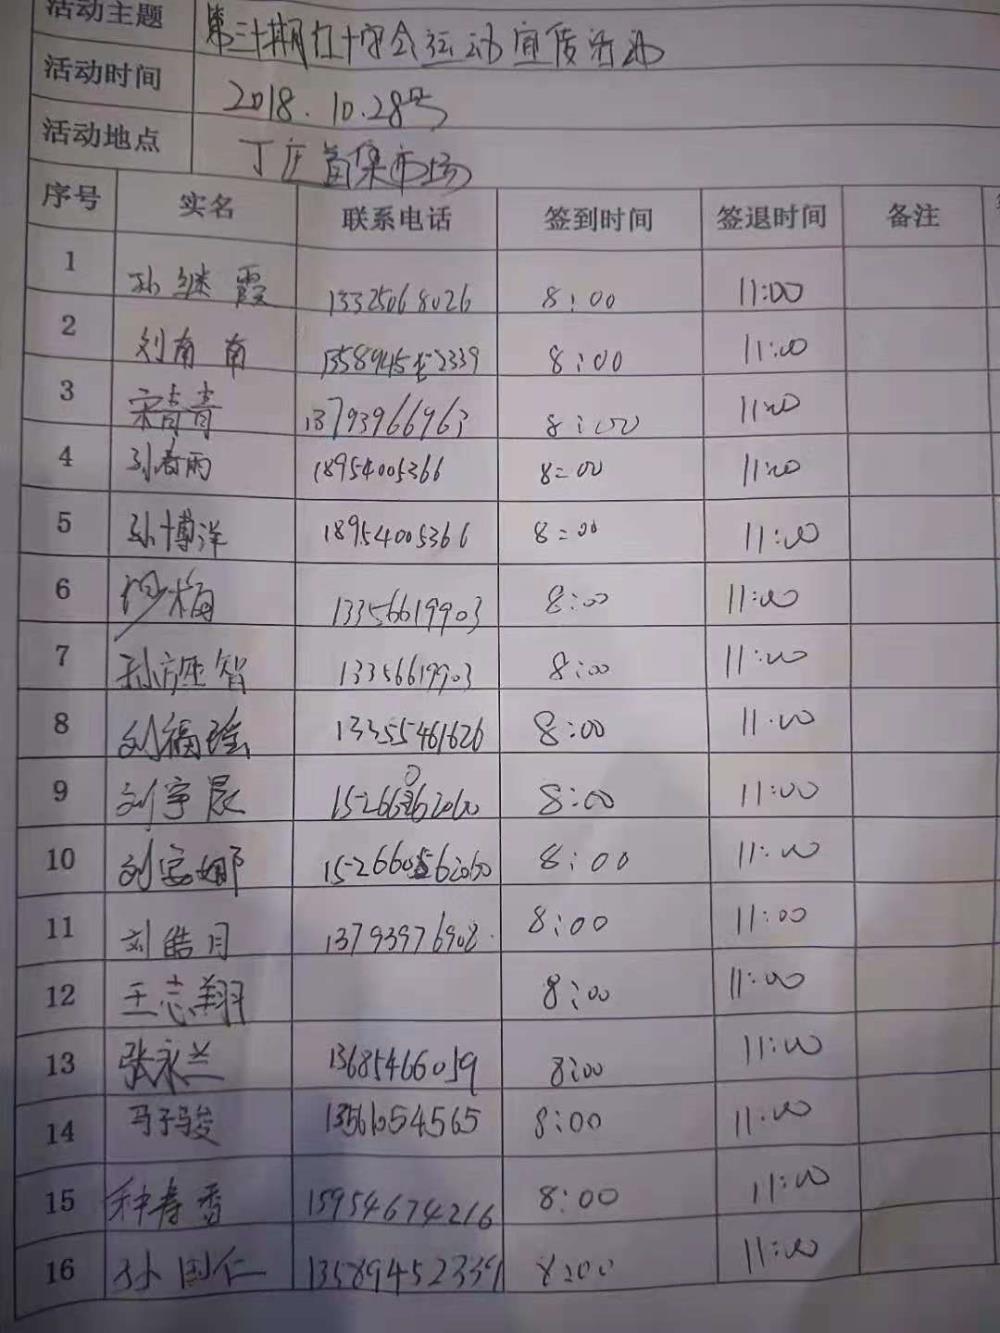 活动主题 第三十期红十字会运动宣传活动
活动时间 2018.10.28号
活动地点 丁庄畜集市场
序号 实名 联系电话 签到时间 签退时间 备注
1 孙继霞 13325068026 8:00 11:00
2 刘南南 13589452339 8:00 11:00
3 宋青青 13793966963 8:00 11:00
4 孙春雨 18954005366 8:00 11:00
5 孙博洋 18954005366 8:00 11:00
6 梅 13356619903 8:00 11:00
7 孙智 13356619903 8:00 11:00
8 刘福瑶 13355461626 8:00 11:00
9 刘宇晨 8:00 11:00
10 刘安娜 8:00 11:00
11 刘皓月 13793976908 8:00 11:00
12 王志翔 8:00 11:00
13 张永兰 13685466059 8:00 11:00
14 马子骏 8:00 11:00
15 种春香 15954674216 8:00 11:00
16 孙国仁 13589452339 8:00 11:00